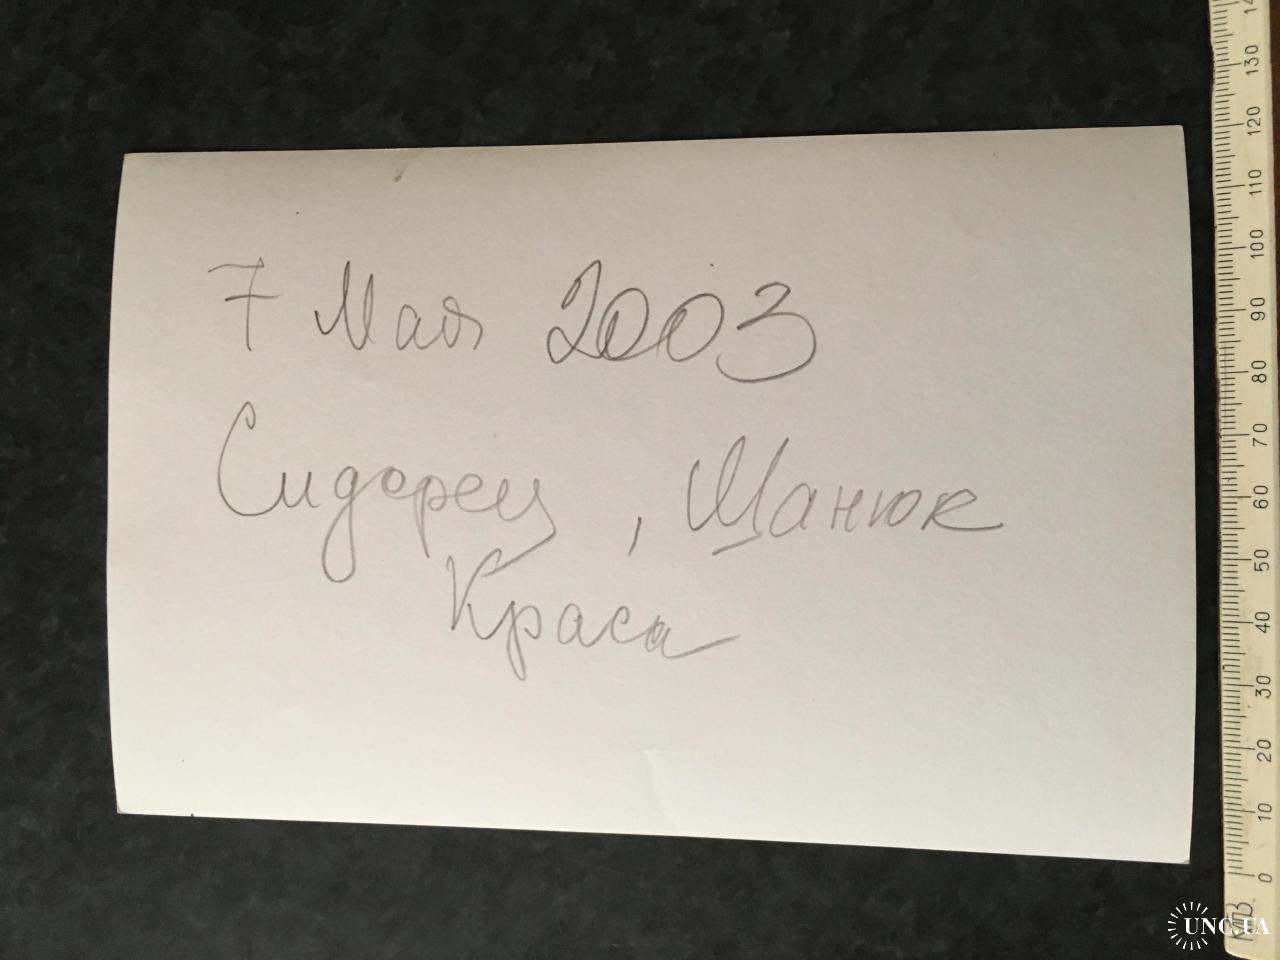 7 Мая 2003
Сидорец, Щанюк
Краса
140
130
120
110
100
90
80
70
60
50
40
30
20
10
0
UNC.UA